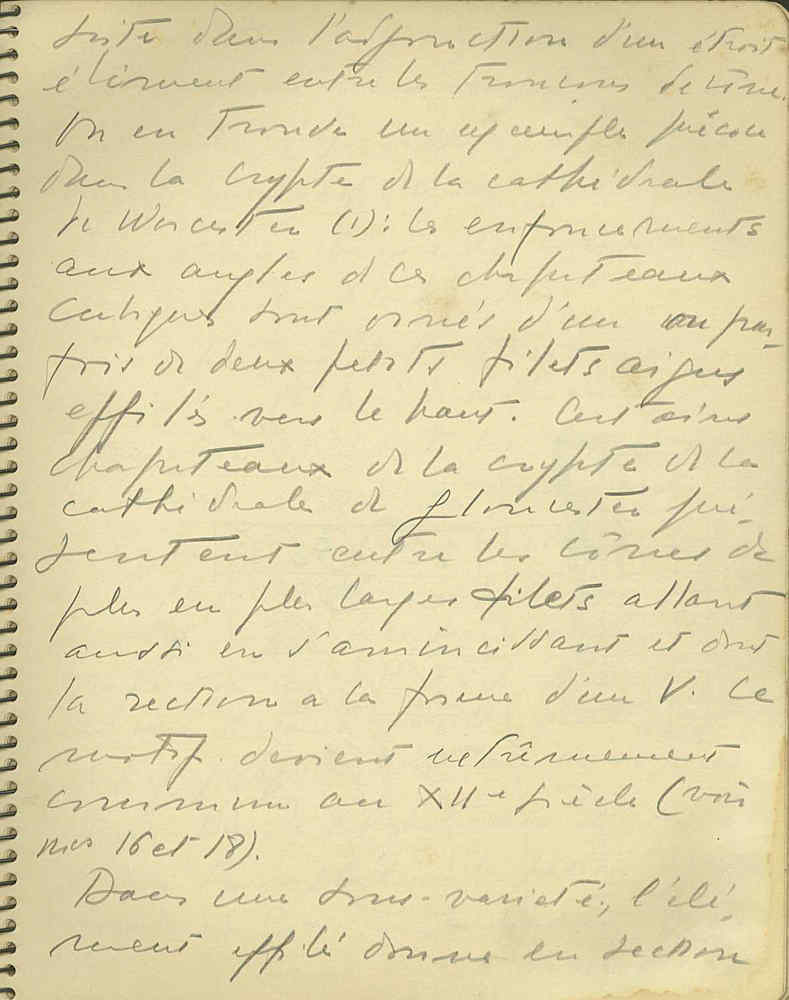 siste dans l'adjonction d'un étroit
élément entre les troncons de cône.
On en trouve un exemple précoce
dans la crypte de la cathédrale
de Worcester (1): les enfoncements
aux angles de ces chapiteaux
cubiques sont ornés d'un ou par-
fois de deux petits filets aigus
effilés vers le haut. Certains
chapiteaux de la crypte de la
cathédrale de Gloucester pré-
sentent entre les cônes de
plus en plus larges filets allant
aussi en s'amincissant et dont
la section a la forme d'un V. Ce
motif devient extrêmement
commun au XIIe siècle (voir
nos 16 et 18).
Dans une sous-varieté, l'élé-
ment effilé donne en section